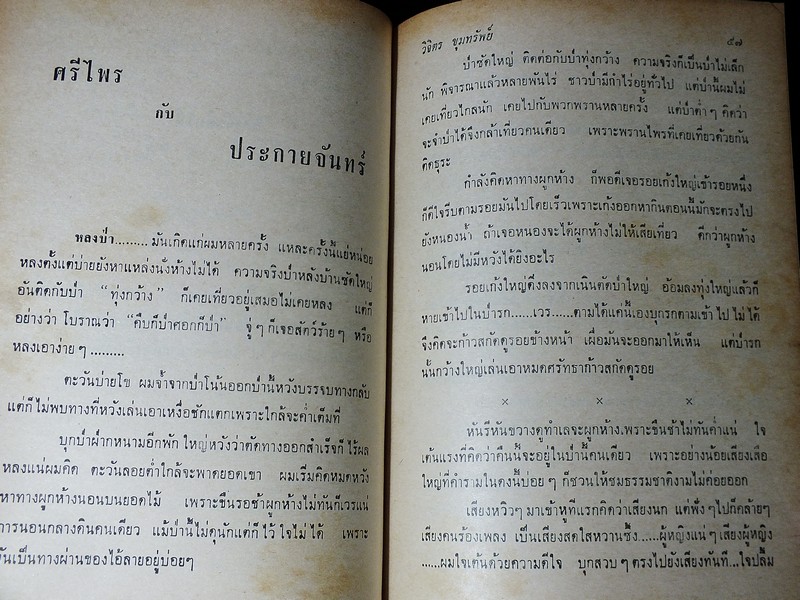 ศรีไพร
กับ
ประกายจันทร์
หลงป่า.........มันเกิดแก่ผมหลายครั้ง แหละครั้งนี้แย่หน่อย
หลงตั้งแต่บ่ายยังหาแหล่งนั่งห้างไม่ได้ ความจริงป่าหลังบ้านซัดใหญ่
อันติดกับป่า “ทุ่งกว้าง” ก็เคยเที่ยวอยู่เสมอไม่เคยหลง แต่ก็
อย่างว่า โบราณว่า “คืบก็ป่าศอกก็ป่า” จู่ๆ ก็เจอสัตว์ร้ายๆ หรือ
หลงเอาง่ายๆ.........
ตะวันบ่ายโข ผมจ้ำจากป่าโน้นออกป่านี้หวังบรรจบทางกลับ
แต่ก็ไม่พบทางที่หวังเล่นเอาเหงื่อชักแตกเพราะใกล้จะค่ำเต็มที่
บุกป่าฝ่าหนามอีกพัก ใหญ่หวังว่าตัดทางออกสำเร็จก็ไร้ผล
หลงแน่ผมคิด ตะวันลอยต่ำใกล้จะพาดยอดเขา ผมเริ่มคิดหมดหวัง
หาทางผูกห้างนอนบนยอดไม้ เพราะขืนรอช้าผูกห้างไม่ทันก็เวรแน่
การนอนกลางดินคนเดียว แม้ป่านี้ไม่ดุนักแต่ก็ไว้ใจไม่ได้ เพราะ
มันเป็นทางผ่านของไอ้ลายอยู่บ่อยๆ
วิจิตร ขุมทรัพย์ ๕๗
ป่าซัดใหญ่ ติดต่อกับป่าทุ่งกว้าง ความจริงก็เป็นป่าไม่เล็ก
นัก พิจารณาแล้วหลายพันไร่ ชาวป่ามีกำไรอยู่ทั่วไป แต่ป่านี้ผมไม่
เคยเที่ยวไกลนัก เคยไปกับพวกพรานหลายครั้ง แต่ป่าต่ำๆ คิดว่า
จะจำป่าได้จึงกล้าเที่ยวคนเดียว เพราะพรานไพรที่เคยเที่ยวด้วยกัน
ติดธุระ
กำลังคิดหาทางผูกห้าง ก็พอดีเจอรอยเก้งใหญ่เข้ารอยหนึ่ง
ก็ดีใจรีบตามรอยมันไปโดยเร็วเพราะเก้งออกหากินตอนนี้มักจะตรงไป
ยังหนองน้ำ ถ้าเจอหนองจะได้ผูกห้างไม่ให้เสียเที่ยว ดีกว่าผูกห้าง
นอนโดยไม่มีหวังได้ยิงอะไร
รอยเก้งใหญ่ดิ่งลงจากเนินตัดป่าใหญ่ อ้อมลงทุ่งใหญ่แล้วก็
หายเข้าไปในป่ารก......เวร......ตามได้แค่นี้เองบุกรกตามเข้าไปไม่ได้
จึงคิดจะก้าวสกัดดูรอยข้างหน้า เผื่อมันจะออกมาให้เห็น แต่ป่ารก
นั้นกว้างใหญ่เล่นเอาหมดศรัทธาก้าวสกัดดูรอย
× × ×
หันรีหันขวางดูทำเลจะผูกห้างเพราะขืนช้าไม่ทันค่ำแน่ ใจ
เต้นแรงที่คิดว่าคืนนี้จะอยู่ในป่านี้คนเดียว เพราะอย่างน้อยเสียงเสือ
ใหญ่ที่คำรามในดงนี้บ่อยๆ ก็ชวนให้ชมธรรมชาติงามไม่ค่อยออก
เสียงหวิวๆ มาเข้าหูทีแรกคิดว่าเสียงนก แต่ฟังๆ ไปก็คล้ายๆ
เสียงคนร้องเพลง เป็นเสียงสดใสหวานซึ้ง......ผู้หญิงแน่ๆ เสียงผู้หญิง
......ผมใจเต้นด้วยความดีใจ บุกสวบๆ ตรงไปยังเสียงทันที...ใจปลื้ม